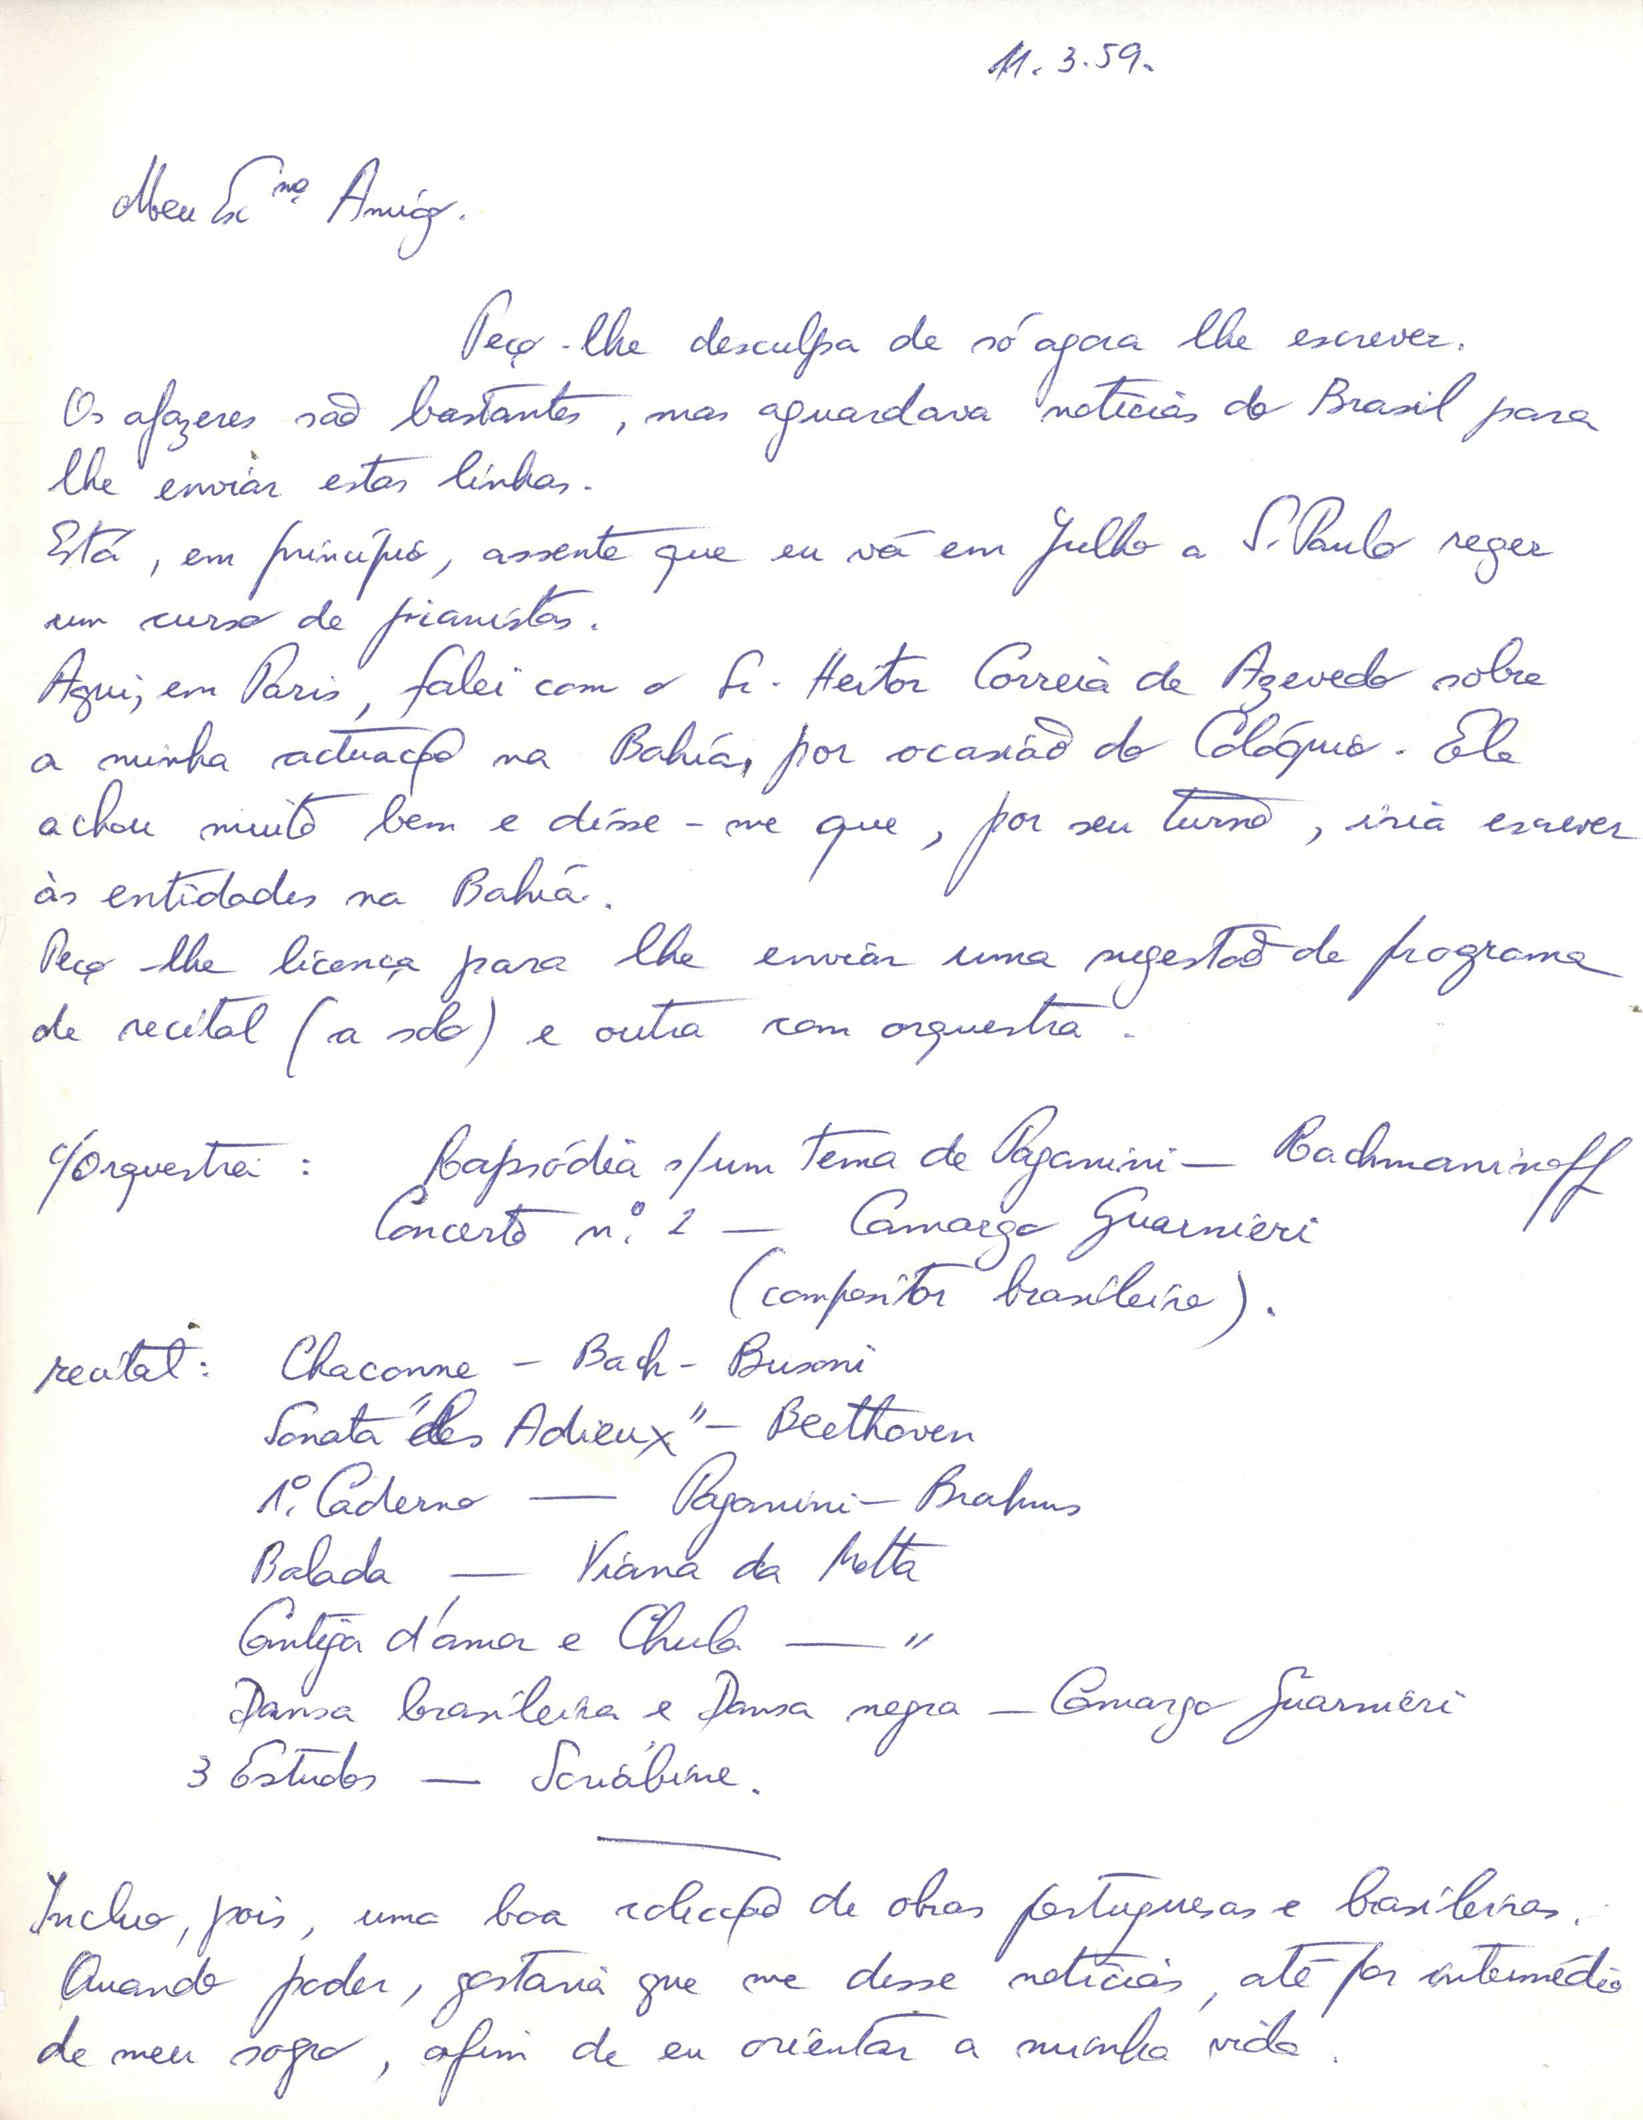 11.3.59.
Meu Exmo Amigo.
Peço-lhe desculpa de só agora lhe escrever.
Os afazeres são bastantes, mas aguardava notícias do Brasil para
lhe enviar estas linhas.
Está, em princípio, assente que eu vá em Julho a S. Paulo reger
um curso de pianistas.
Aqui, em Paris, falei com o Sr. Heitor Correia de Azevedo sobre
a minha actuação na Bahia, por ocasião do Colóquio. Ele
achou muito bem e disse-me que, por seu turno, iria escrever
às entidades na Bahia.
Peço-lhe licença para lhe enviar uma sugestão de programa
de recital (a solo) e outra com orquestra.
c/orquestra: Rapsódia s/um Tema de Paganini — Rachmaninoff
Concerto n.º 2 — Camargo Guarnieri
(compositor brasileiro).
recital: Chaconne - Bach - Busoni
Sonata "des Adieux" — Beethoven
1.º Caderno — Paganini — Brahms
Balada — Viana da Motta
Cantiga d'amor e Chula — "
Dansa brasileira e Dansa negra — Camargo Guarnieri
3 Estudos — Scriábine.
Incluo, pois, uma boa colecção de obras portuguesas e brasileiras.
Quando poder, gostaria que me desse notícias, até por intermédio
de meu sogro, afim de eu orientar a minha vida.